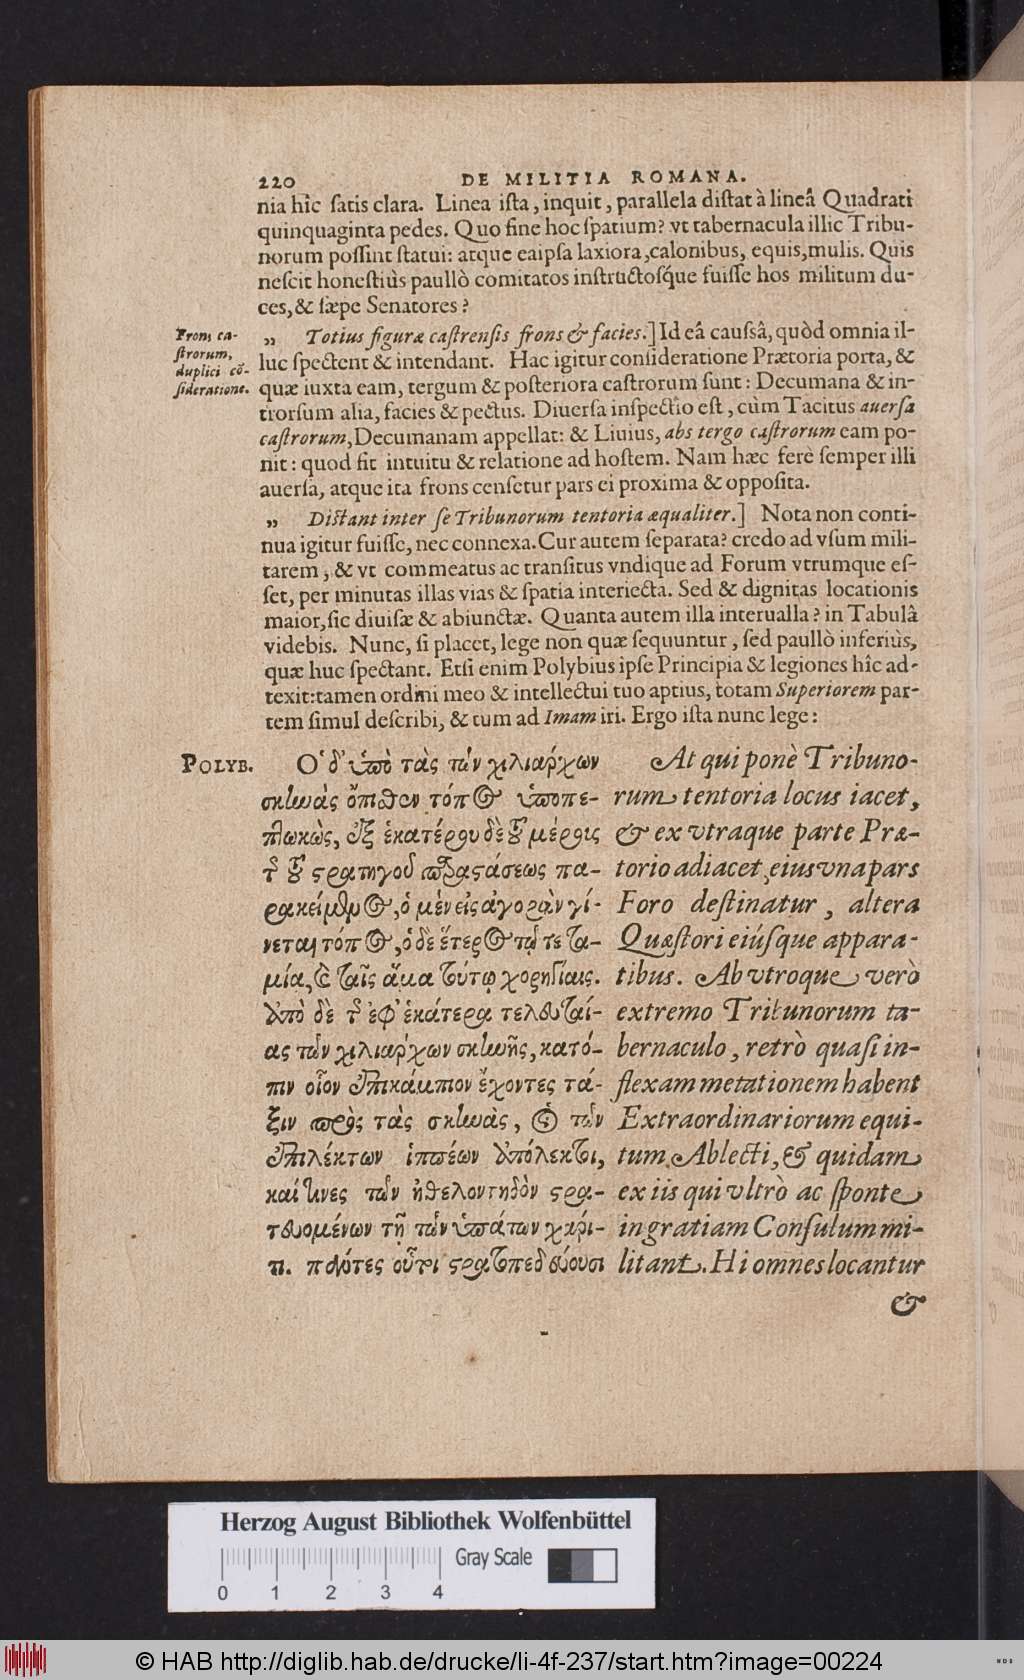 220 DE MILITIA ROMANA.
nia hîc satis clara. Linea ista, inquit, parallela distat à lineâ Quadrati
quinquaginta pedes. Quo fine hoc spatium? vt tabernacula illic Tribu-
norum possint statui: atque eaipsa laxiora, calonibus, equis, mulis. Quis
nescit honestiùs paullò comitatos instructosq́ue fuisse hos militum du-
ces, & sæpe Senatores?
Frons ca-
strorum,
duplici cō-
sideratione.
„ Totius figuræ castrensis frons & facies.] Id eâ caussâ, quòd omnia il-
luc spectent & intendant. Hac igitur consideratione Prætoria porta, &
quæ iuxta eam, tergum & posteriora castrorum sunt: Decumana & in-
trorsum alia, facies & pectus. Diuersa inspectio est, cùm Tacitus auersa
castrorum, Decumanam appellat: & Liuius, abs tergo castrorum eam po-
nit: quod fit intuitu & relatione ad hostem. Nam hæc ferè semper illi
auersa, atque ita frons censetur pars ei proxima & opposita.
„ Distant inter se Tribunorum tentoria æqualiter.] Nota non conti-
nua igitur fuisse, nec connexa. Cur autem separata? credo ad vsum mili-
tarem, & vt commeatus ac transitus vndique ad Forum vtrumque es-
set, per minutas illas vias & spatia interiecta. Sed & dignitas locationis
maior, sic diuisæ & abiunctæ. Quanta autem illa interualla? in Tabulâ
videbis. Nunc, si placet, lege non quæ sequuntur, sed paullò inferiùs,
quæ huc spectant. Etsi enim Polybius ipse Principia & legiones hîc ad-
texit: tamen ordini meo & intellectui tuo aptius, totam Superiorem par-
tem simul describi, & tum ad Imam iri. Ergo ista nunc lege:
POLYB.
Ὁ δ’ ὑπὸ τὰς τῶν χιλιάρχων
σκηνὰς ὄπισθεν τόπος ὑποπε-
πτωκὼς, ἐξ ἑκατέρου δὲ τοῦ μέρους
τῆς τοῦ στρατηγοῦ παραστάσεως πα-
ρακείμενος, ὁ μὲν εἰς ἀγορὰν γί-
νεται τόπος, ὁ δὲ ἕτερος τῷ τε τα-
μίᾳ, καὶ ταῖς ἅμα τούτῳ χορηγίαις.
ἀπὸ δὲ τῆς ἐφ’ ἑκάτερα τελευταί-
ας τῶν χιλιάρχων σκηνῆς, κατό-
πιν οἷον ἐπικάμπιον ἔχοντες τά-
ξιν πρὸς τὰς σκηνὰς, οἱ τῶν
ἐπιλέκτων ἱππέων ἀπόλεκτοι,
καί τινες τῶν ἠθελοντηδὸν στρα-
τευομένων τῇ τῶν ὑπάτων χάρι-
τι. πάντες οὗτοι στρατοπεδεύουσι
At qui ponè Tribuno-
rum tentoria locus iacet,
& ex vtraque parte Præ-
torio adiacet, eius vna pars
Foro destinatur, altera
Quæstori eiúsque appara-
tibus. Ab vtroque verò
extremo Tribunorum ta-
bernaculo, retrò quasi in-
flexam metationem habent
Extraordinariorum equi-
tum Ablecti, & quidam
ex iis qui vltrò ac sponte
in gratiam Consulum mi-
litant. Hi omnes locantur
&
Herzog August Bibliothek Wolfenbüttel
Gray Scale
0 1 2 3 4
© HAB http://diglib.hab.de/drucke/li-4f-237/start.htm?image=00224